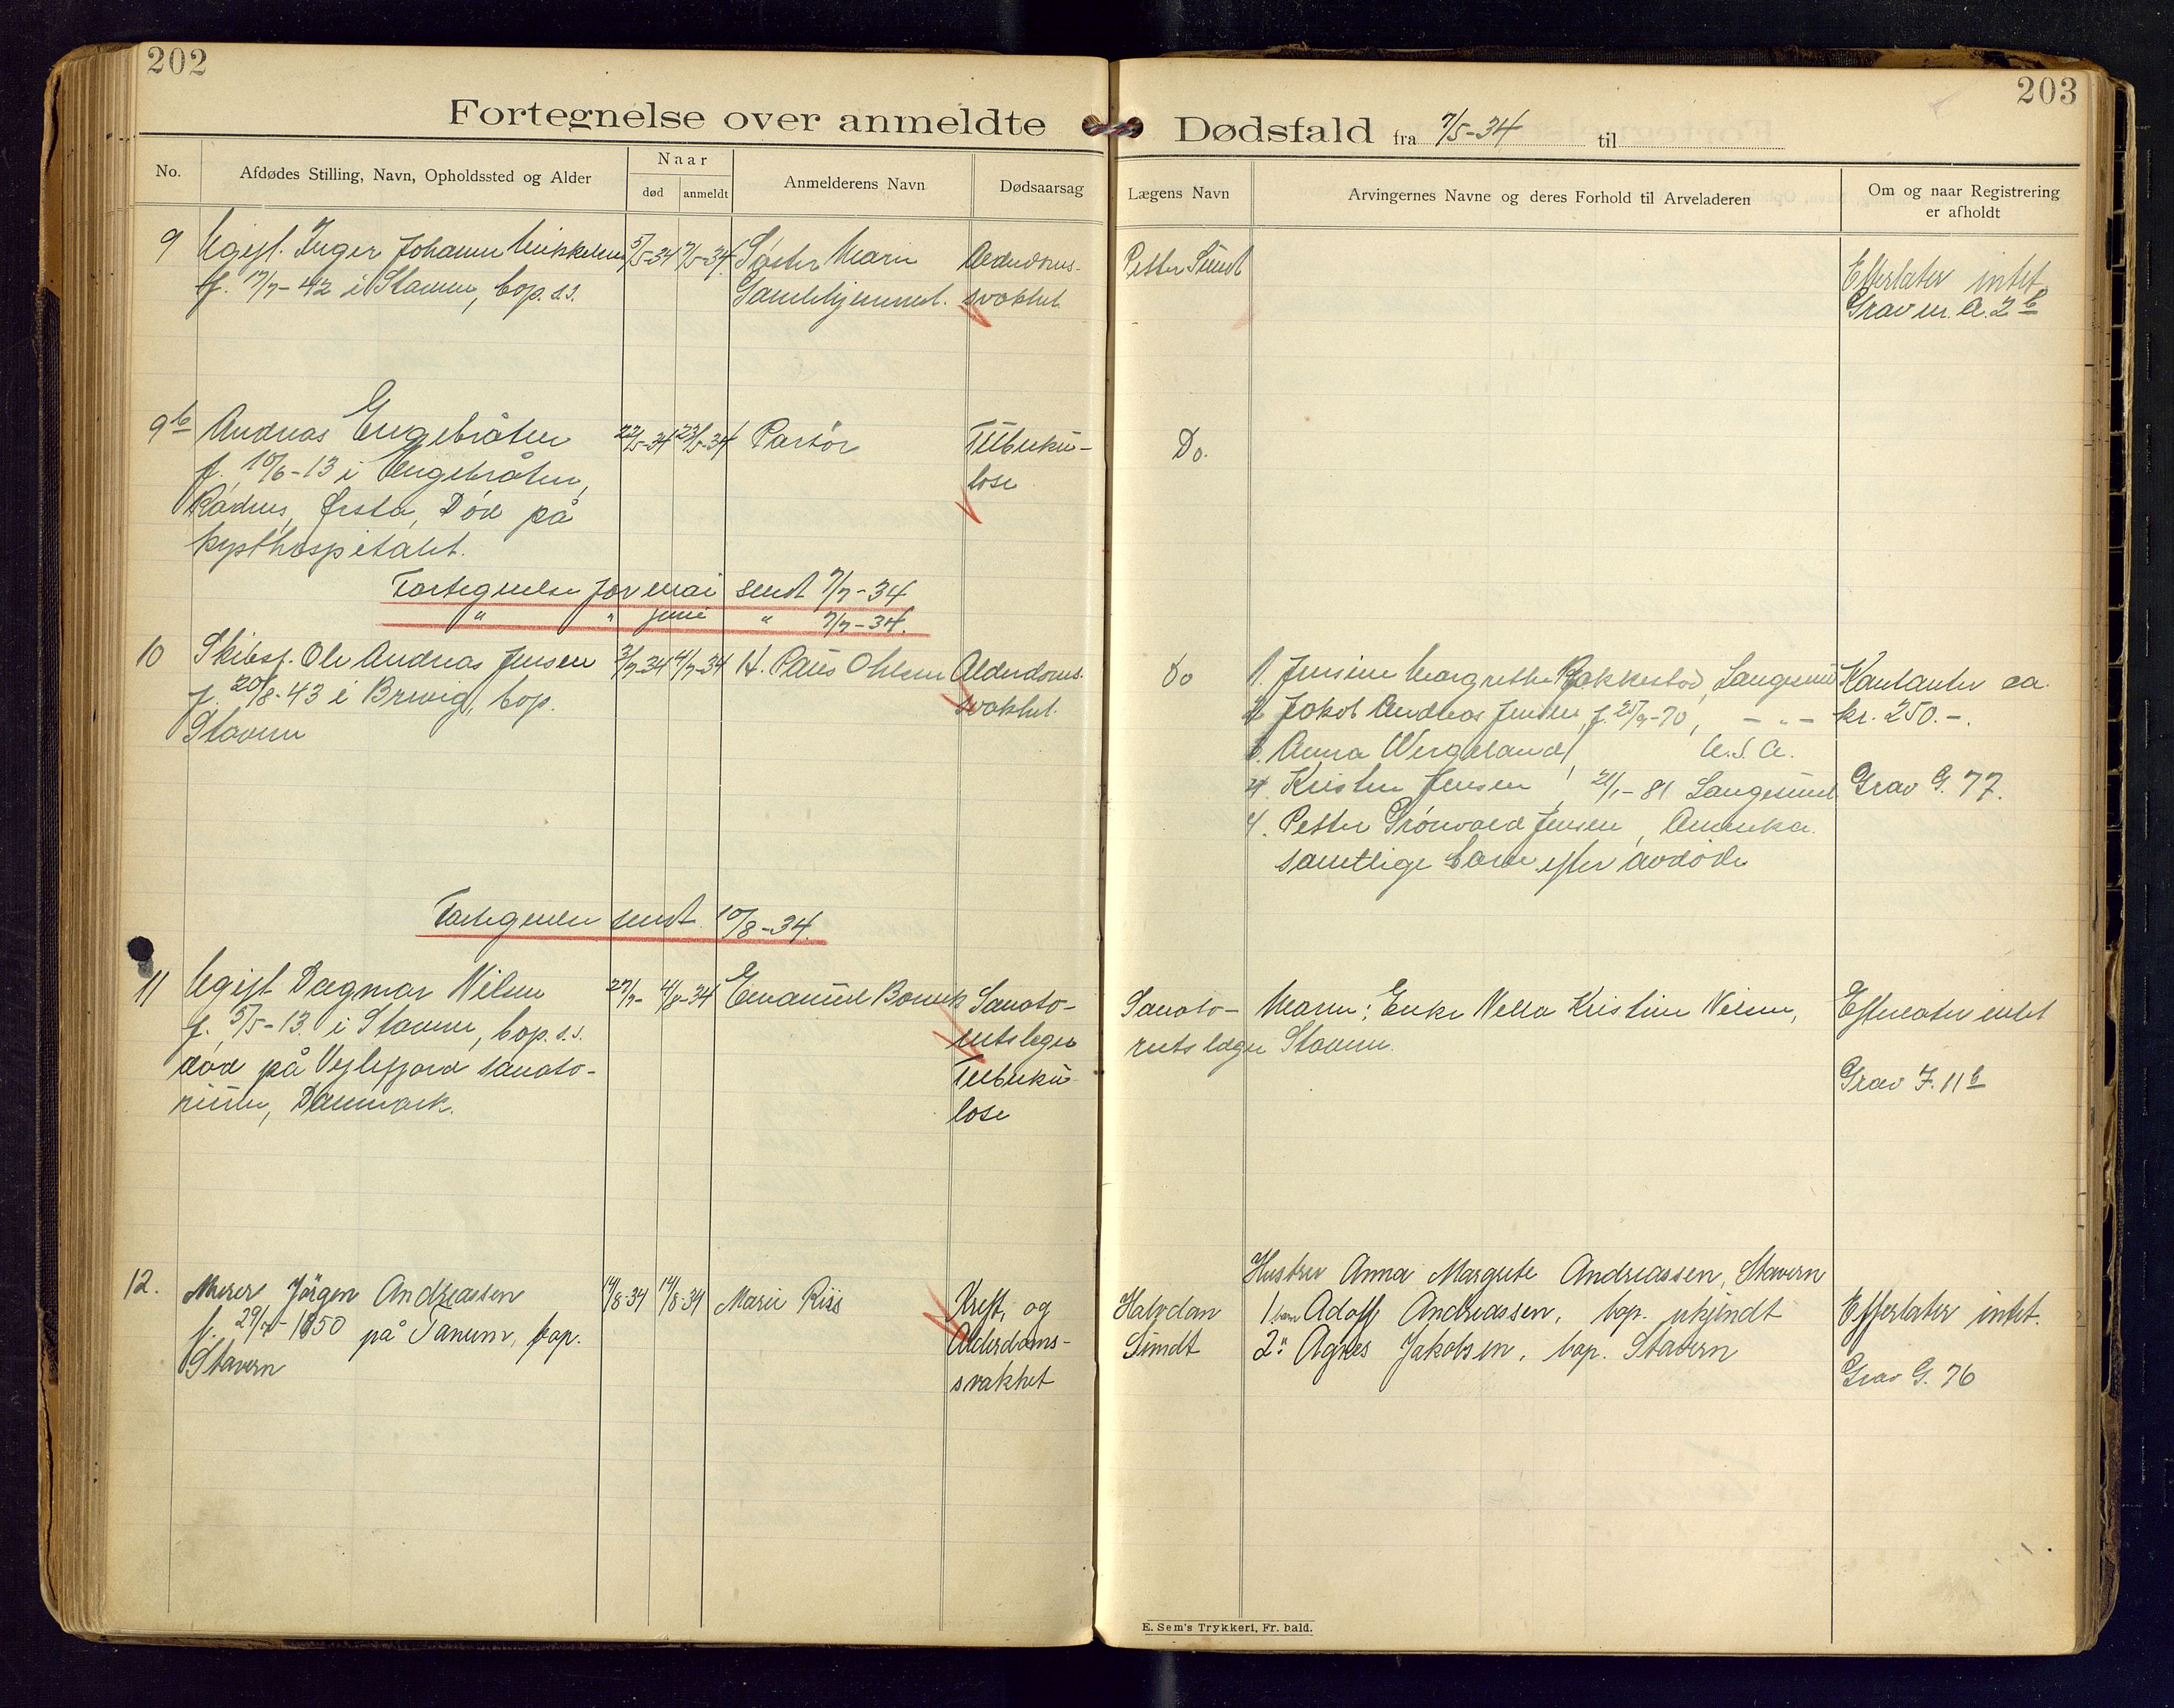 202
203
Fortegnelse over anmeldte
Dødsfald fra 7/5-34 til
No.
Afdødes Stilling, Navn, Opholdssted og Alder
Naar
død
anmeldt
Anmelderens Navn
Dødsaarsag
Lægens Navn
Arvingernes Navne og deres Forhold til Arveladeren
Om og naar Registrering
er afholdt
9 Ugift. Inger Johanne Mikkelsen 5/5-34 7/5-34 Søster Maren Alderdoms- Petter Sundt
f. 17/7-42 i Stavern, bop. s.s. Gamlehjemmet. svakhet
Efterlater intet
Grav nr. A. 2 b
9b Andreas Engebråten 22/5-34 23/5-34 Pastor Tuberku- Do.
f. 10/6-13 i Engebråten, lose
Død på
kysthospitalet.
Fortegnelse for mai sendt 7/7-34
" " juni " 7/7-34.
10 Skibsf. Ole Andreas Jensen 3/7-34 4/7-34 H. Paus Ohlsen Alderdoms- Do 1. Jensine Margrethe Bakkestø, Langesund Kontanter ca.
f. 20/8-43 i Brevig, bop. svakhet. 2. Jakob Andreas Jensen, f. 25/9-70, - " - kr. 250.-.
Stavern 3. Anna Vergeland, U.S.A.
4. Kristen Jensen, 21/1-81 Langesund Grav G. 77.
4. Petter Grönvold Jensen, Amerika.
samtlige barn efter avdöde
Fortegnelse sendt 10/8-34.
11 Ugift Dagmar Nilsen 27/7- 4/8-34 Emanuel Sanato- Sanato- Moren: Enke Nella Kristine Nilsen, Efterlater intet
f. 5/5-13 i Stavern, bop. s.s. riets læge riets læge Stavern.
død på Vejlefjord sanato- Tuberku- Grav F. 11 b
rium, Danmark. lose
Hustru Anna Margrete Andreassen, Stavern
12. Murer Jörgen Andreassen 14/8-34 14/8-34 Marie Riis Kreft, og Halvdan 1. barn Adolf Andreassen, bop. ukjendt Efterlater intet.
f. 29/7-1850 på Tanum, bop. Alderdoms- Sundt 2. " Agnes Jakobsen, bop. Stavern
Stavern svakhet Grav G. 76
E. Sem's Trykkeri, Fr. hald.